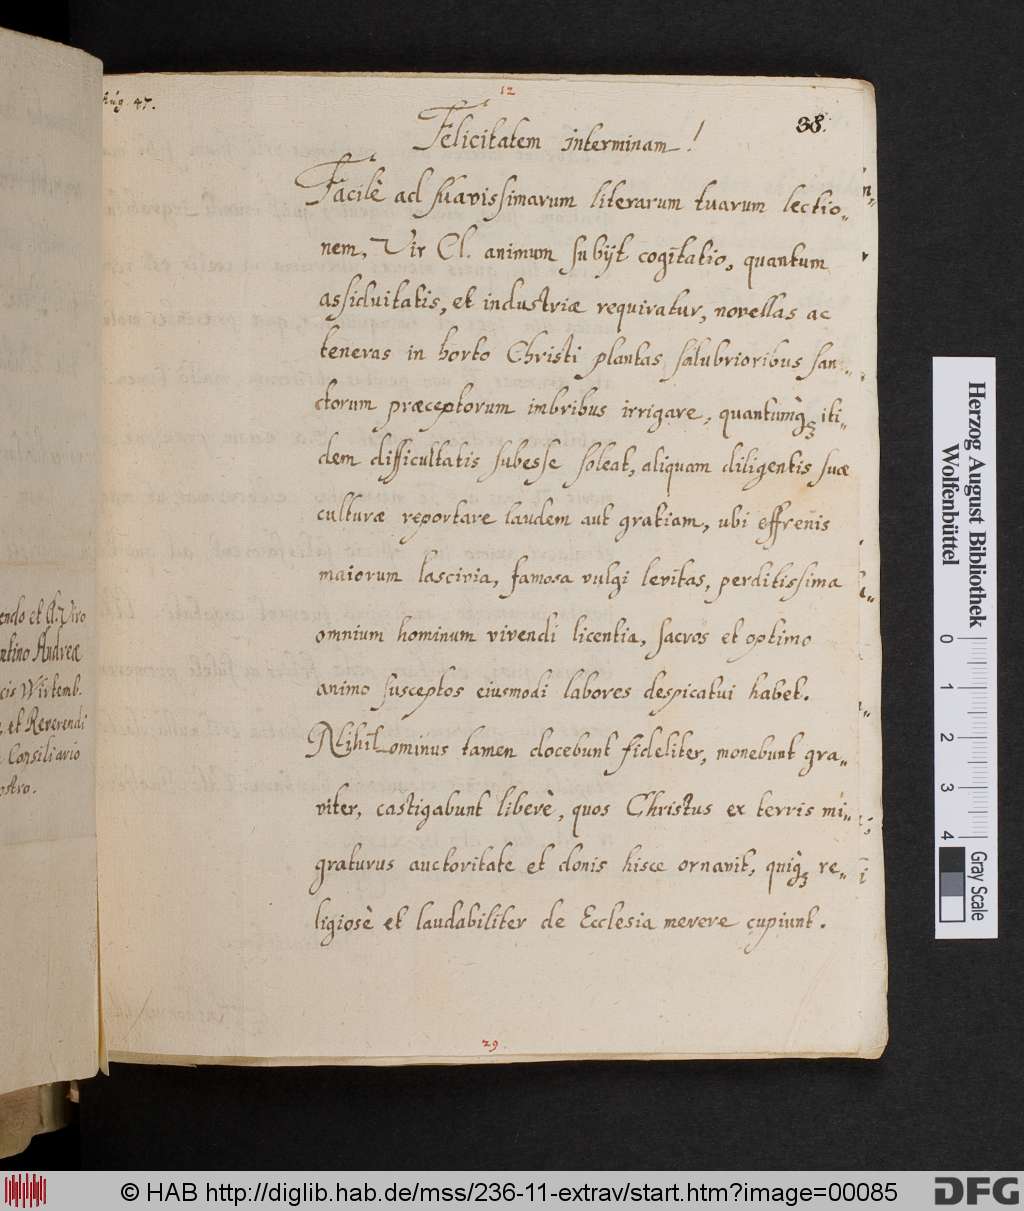 12
Aug. 47.
38.
Felicitatem interminam!
Facilè ad suavissimarum literarum tuarum lectio„
nem, Vir Cl. animum subijt cogitatio, quantum
assiduitatis, et industriæ requiratur, novellas ac
teneras in horto Christi plantas salubrioribus san„
ctorum præceptorum imbribus irrigare, quantumq́ꝫ iti„
dem difficultatis subesse soleat, aliquam diligentis suæ
culturæ reportare laudem aut gratiam, ubi effrenis
maiorum lascivia, famosa vulgi levitas, perditissima
omnium hominum vivendi licentia, sacros et optimo
animo susceptos eiusmodi labores despicatui habet.
Nihilominus tamen docebunt fideliter, monebunt gra„
viter, castigabunt liberè, quos Christus ex terris mi„
graturus auctoritate et donis hisce ornavit, quiq́ꝫ re„
ligiosè et laudabiliter de Ecclesia merere cupiunt.
29.
endo et Cl. Viro
Andreæ
cis Wirtemb.
et Reverendi
Consiliario
ostro.
Herzog August Bibliothek
Wolfenbüttel
0 1 2 3 4
Gray Scale
© HAB http://diglib.hab.de/mss/236-11-extrav/start.htm?image=00085
DFG